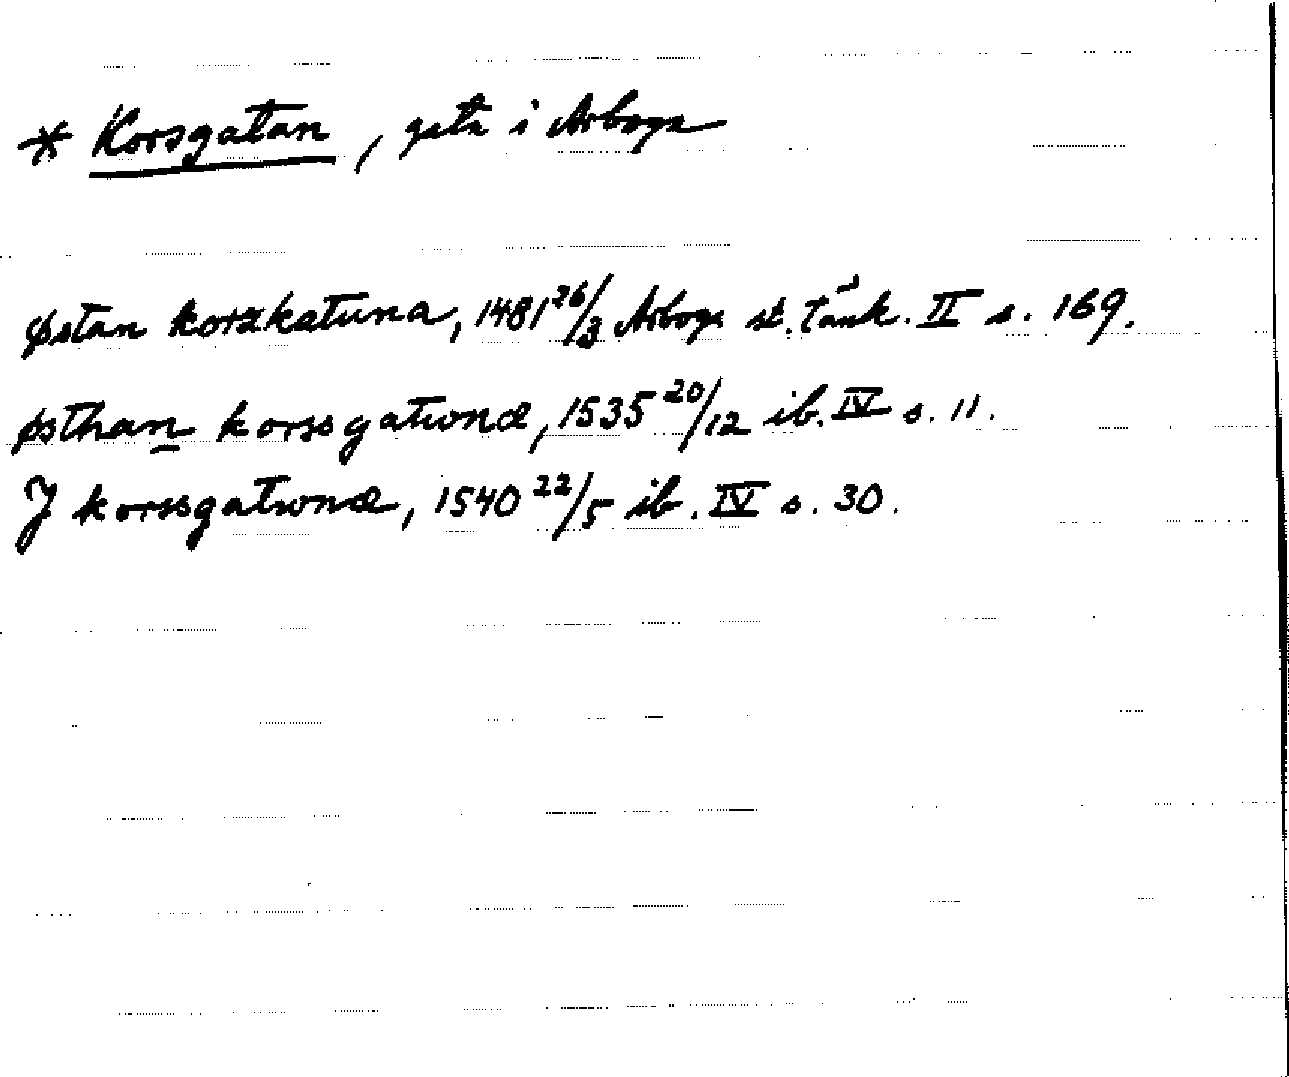 * Korsgatan, gata i Arboga
østan korskatuna, 1481 26/3 Arboga st. tänk. II s. 169.
østhan korssgatwnæ, 1535 20/12 ib. IV s. 11.
J korssgatwnæ, 1540 22/5 ib. IV s. 30.